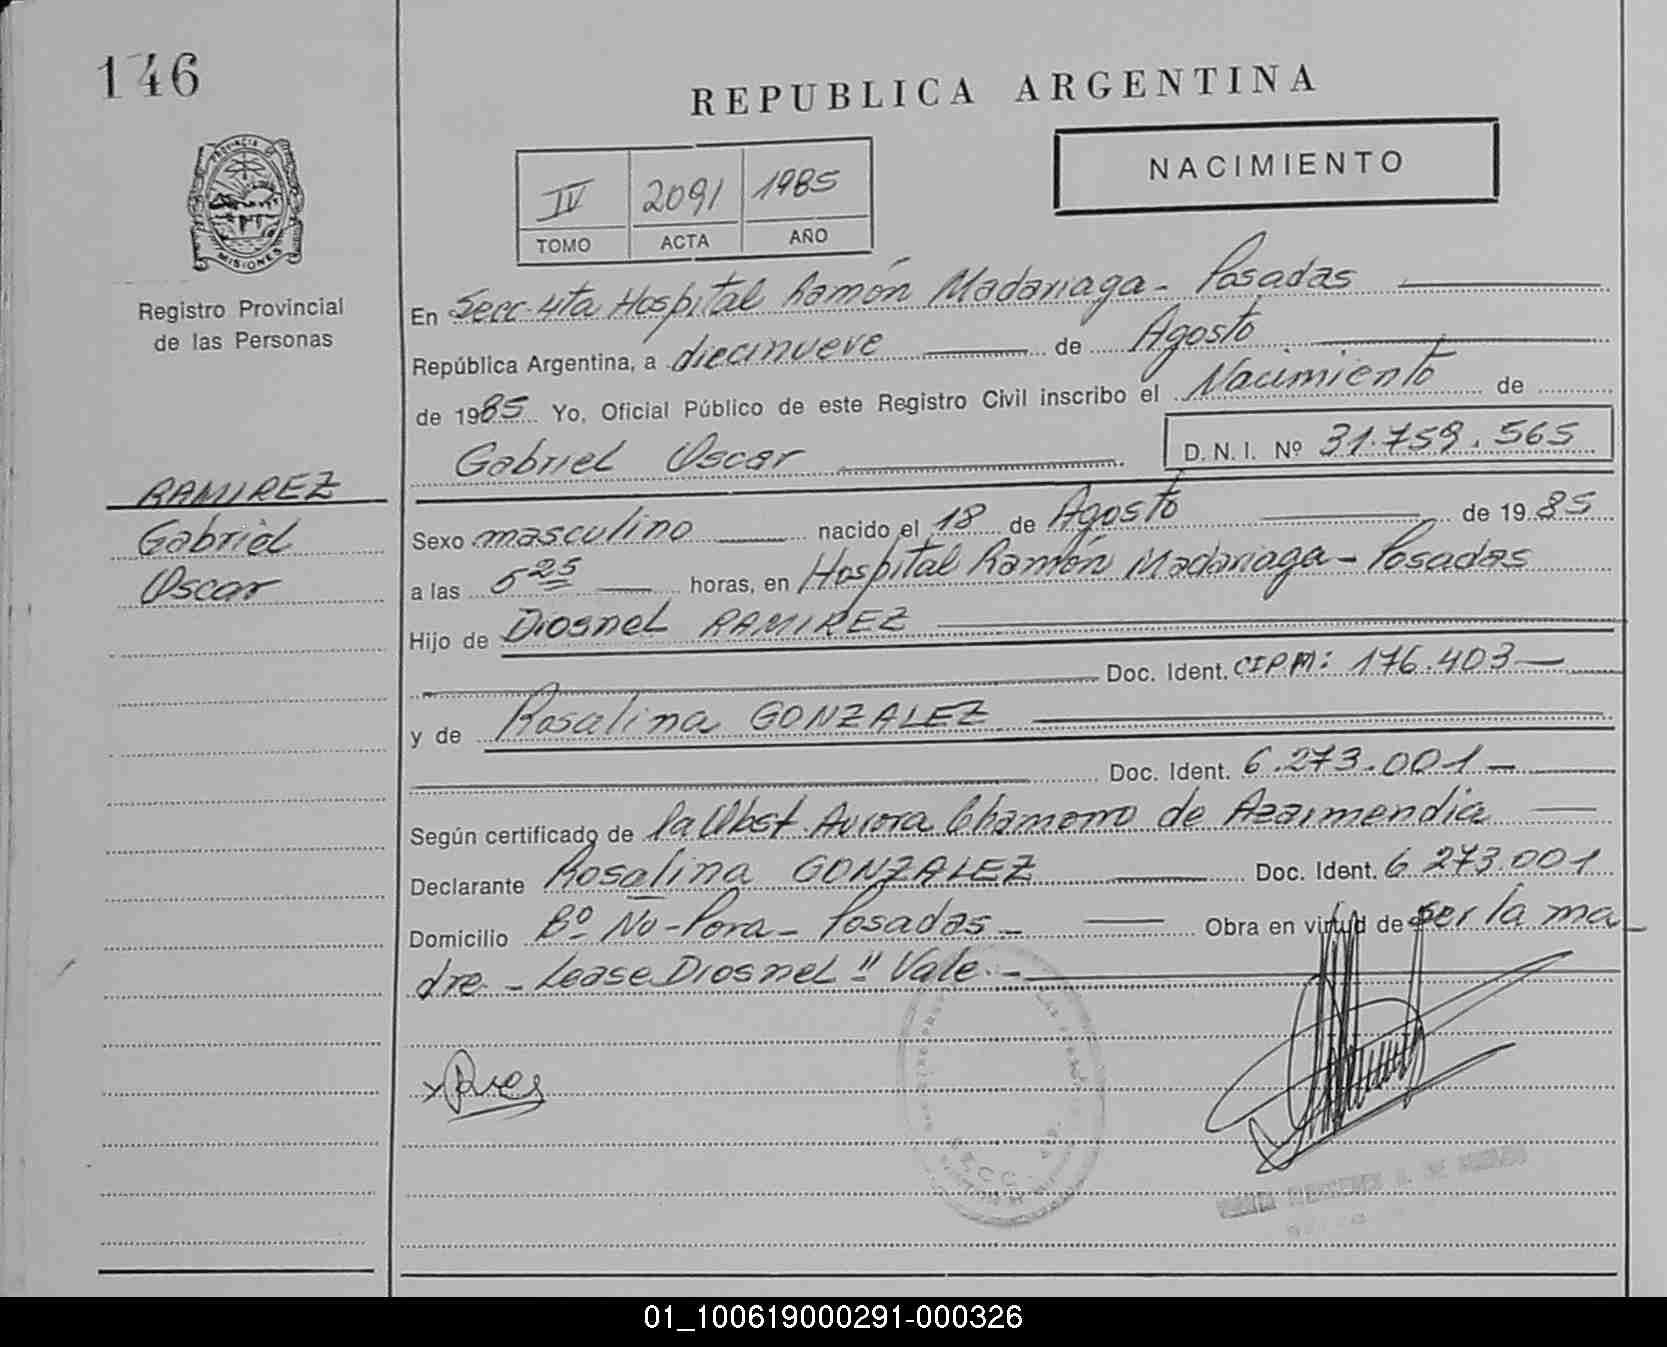 146
REPUBLICA ARGENTINA
NACIMIENTO
IV 2091 1985
TOMO ACTA AÑO
PROVINCIA DE
MISIONES
Registro Provincial
de las Personas
RAMIREZ
Gabriel
Oscar
En Secc. 4ta Hospital Ramón Madariaga - Posadas
República Argentina, a diecinueve de Agosto
de 1985 Yo, Oficial Público de este Registro Civil inscribo el Nacimiento de
Gabriel Oscar D.N.I. Nº 31.759.565
Sexo masculino nacido el 18 de Agosto de 1985
a las 5 25 horas, en Hospital Ramón Madariaga - Posadas
Hijo de Diosnel RAMIREZ
Doc. Ident. CIPM: 176.403
y de Rosalina GONZALEZ
Doc. Ident. 6.273.001
Según certificado de la Obst. Aurora Chamorro de Azarmendia
Declarante Rosalina GONZALEZ Doc. Ident. 6.273.001
Domicilio Bº Ñu-Pora - Posadas - Obra en virtud de ser la ma
dre - Lease Diosnel " Vale. -
SECC.
01_100619000291-000326